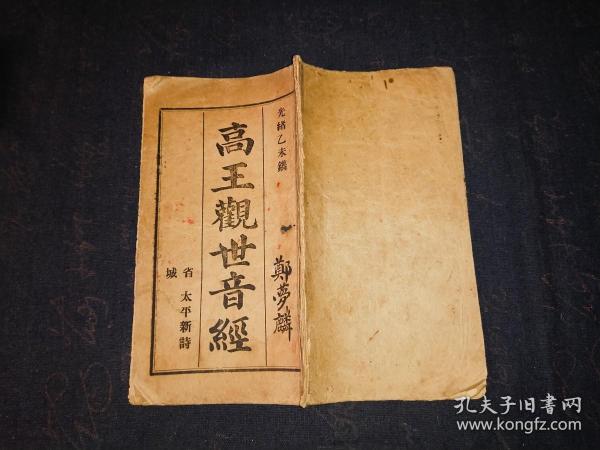 光緒乙未鐫
鄭夢麟
高王觀世音經
省
城
太平新詩
孔夫子旧书网
www.kongfz.com